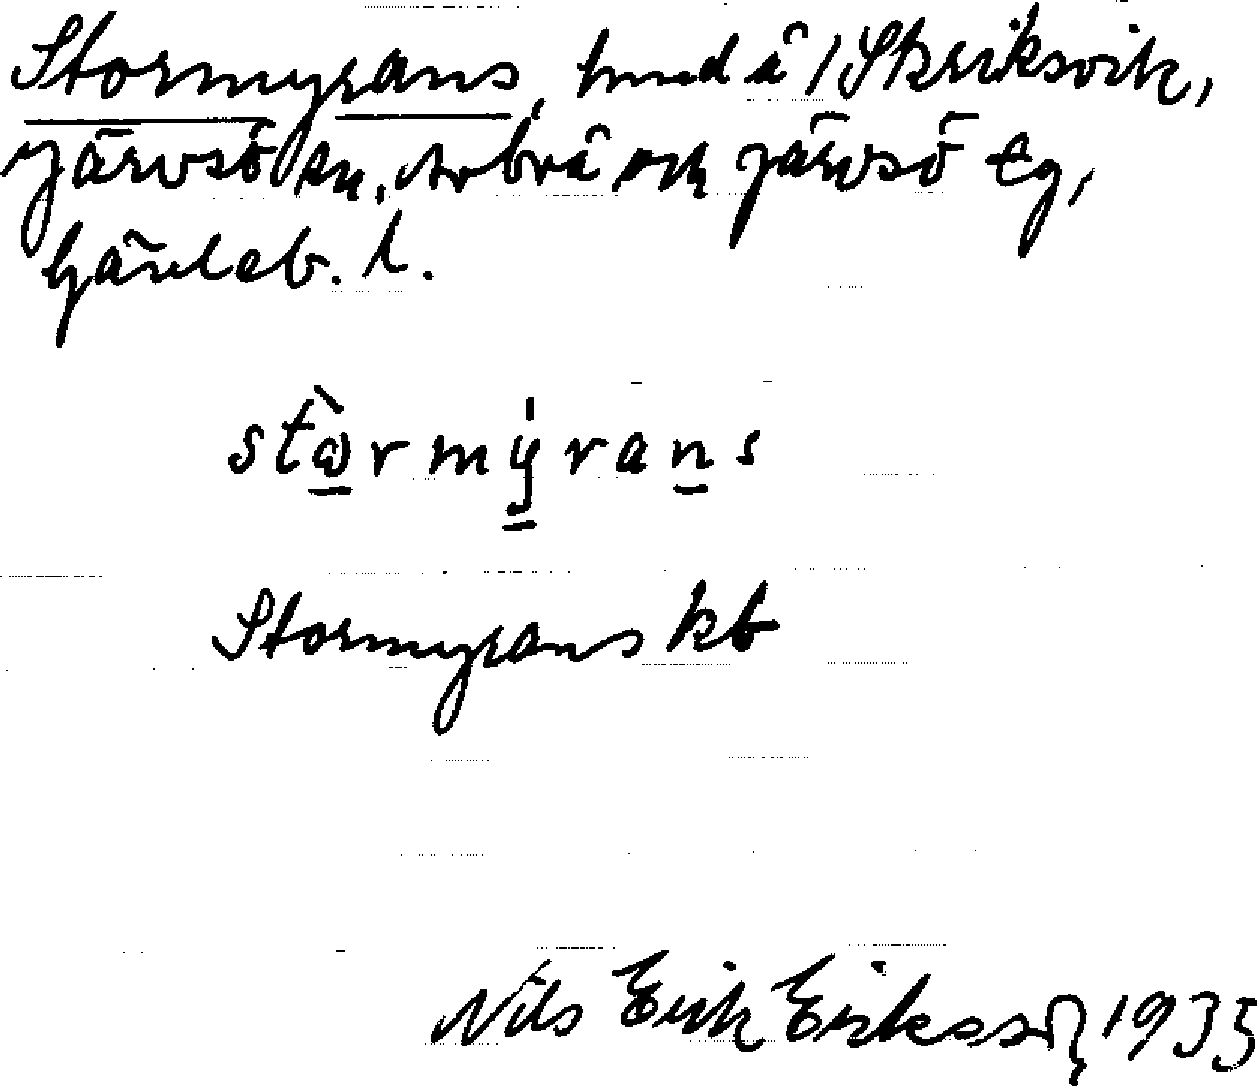 Stormyrans, hmd å 1 Skriksvik,
Järvsö sn, Arbrå och Järvsö tg,
Gävleb. l.
stɷrmýrans
Stormyrans kb
Nils Erik Eriksson, 1935